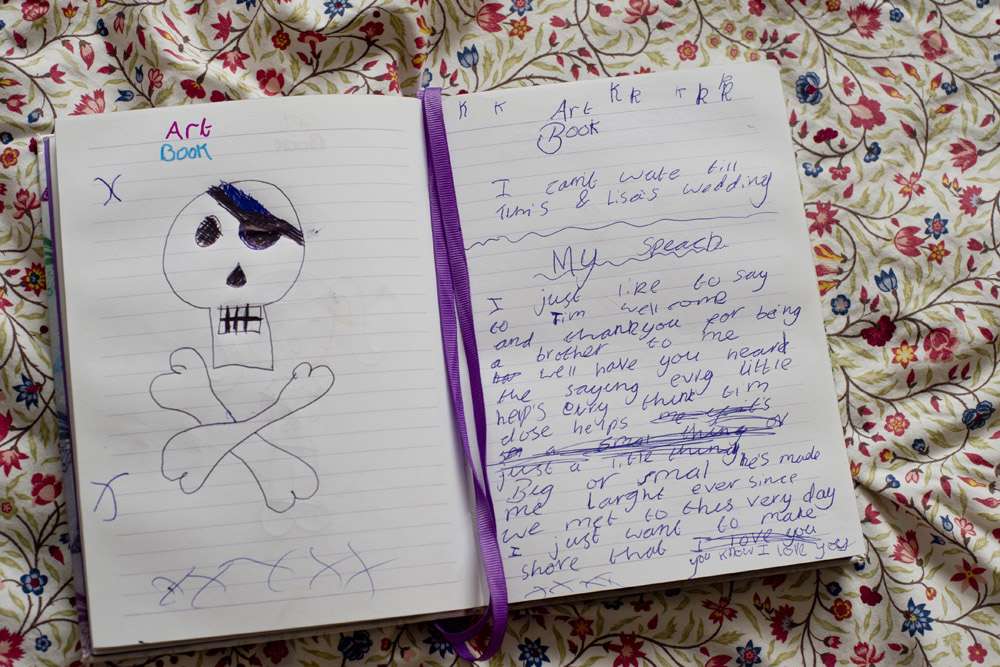 Art
Book
X
X X X X X
K K Art K R K R R
Book
I cant wate till
Tim's & Lisa's wedding
My Speach
I just like to say
to Tim well come
and thankyou for being
a brother to me
well have you heard
the saying evrig little
help's evry think tim
dose helps me
a smal thing or
just a little thing
Big or smal he's made
me larght ever since
we met to this very day
I just want to make
shore that I love you
you know I love you
X X X X